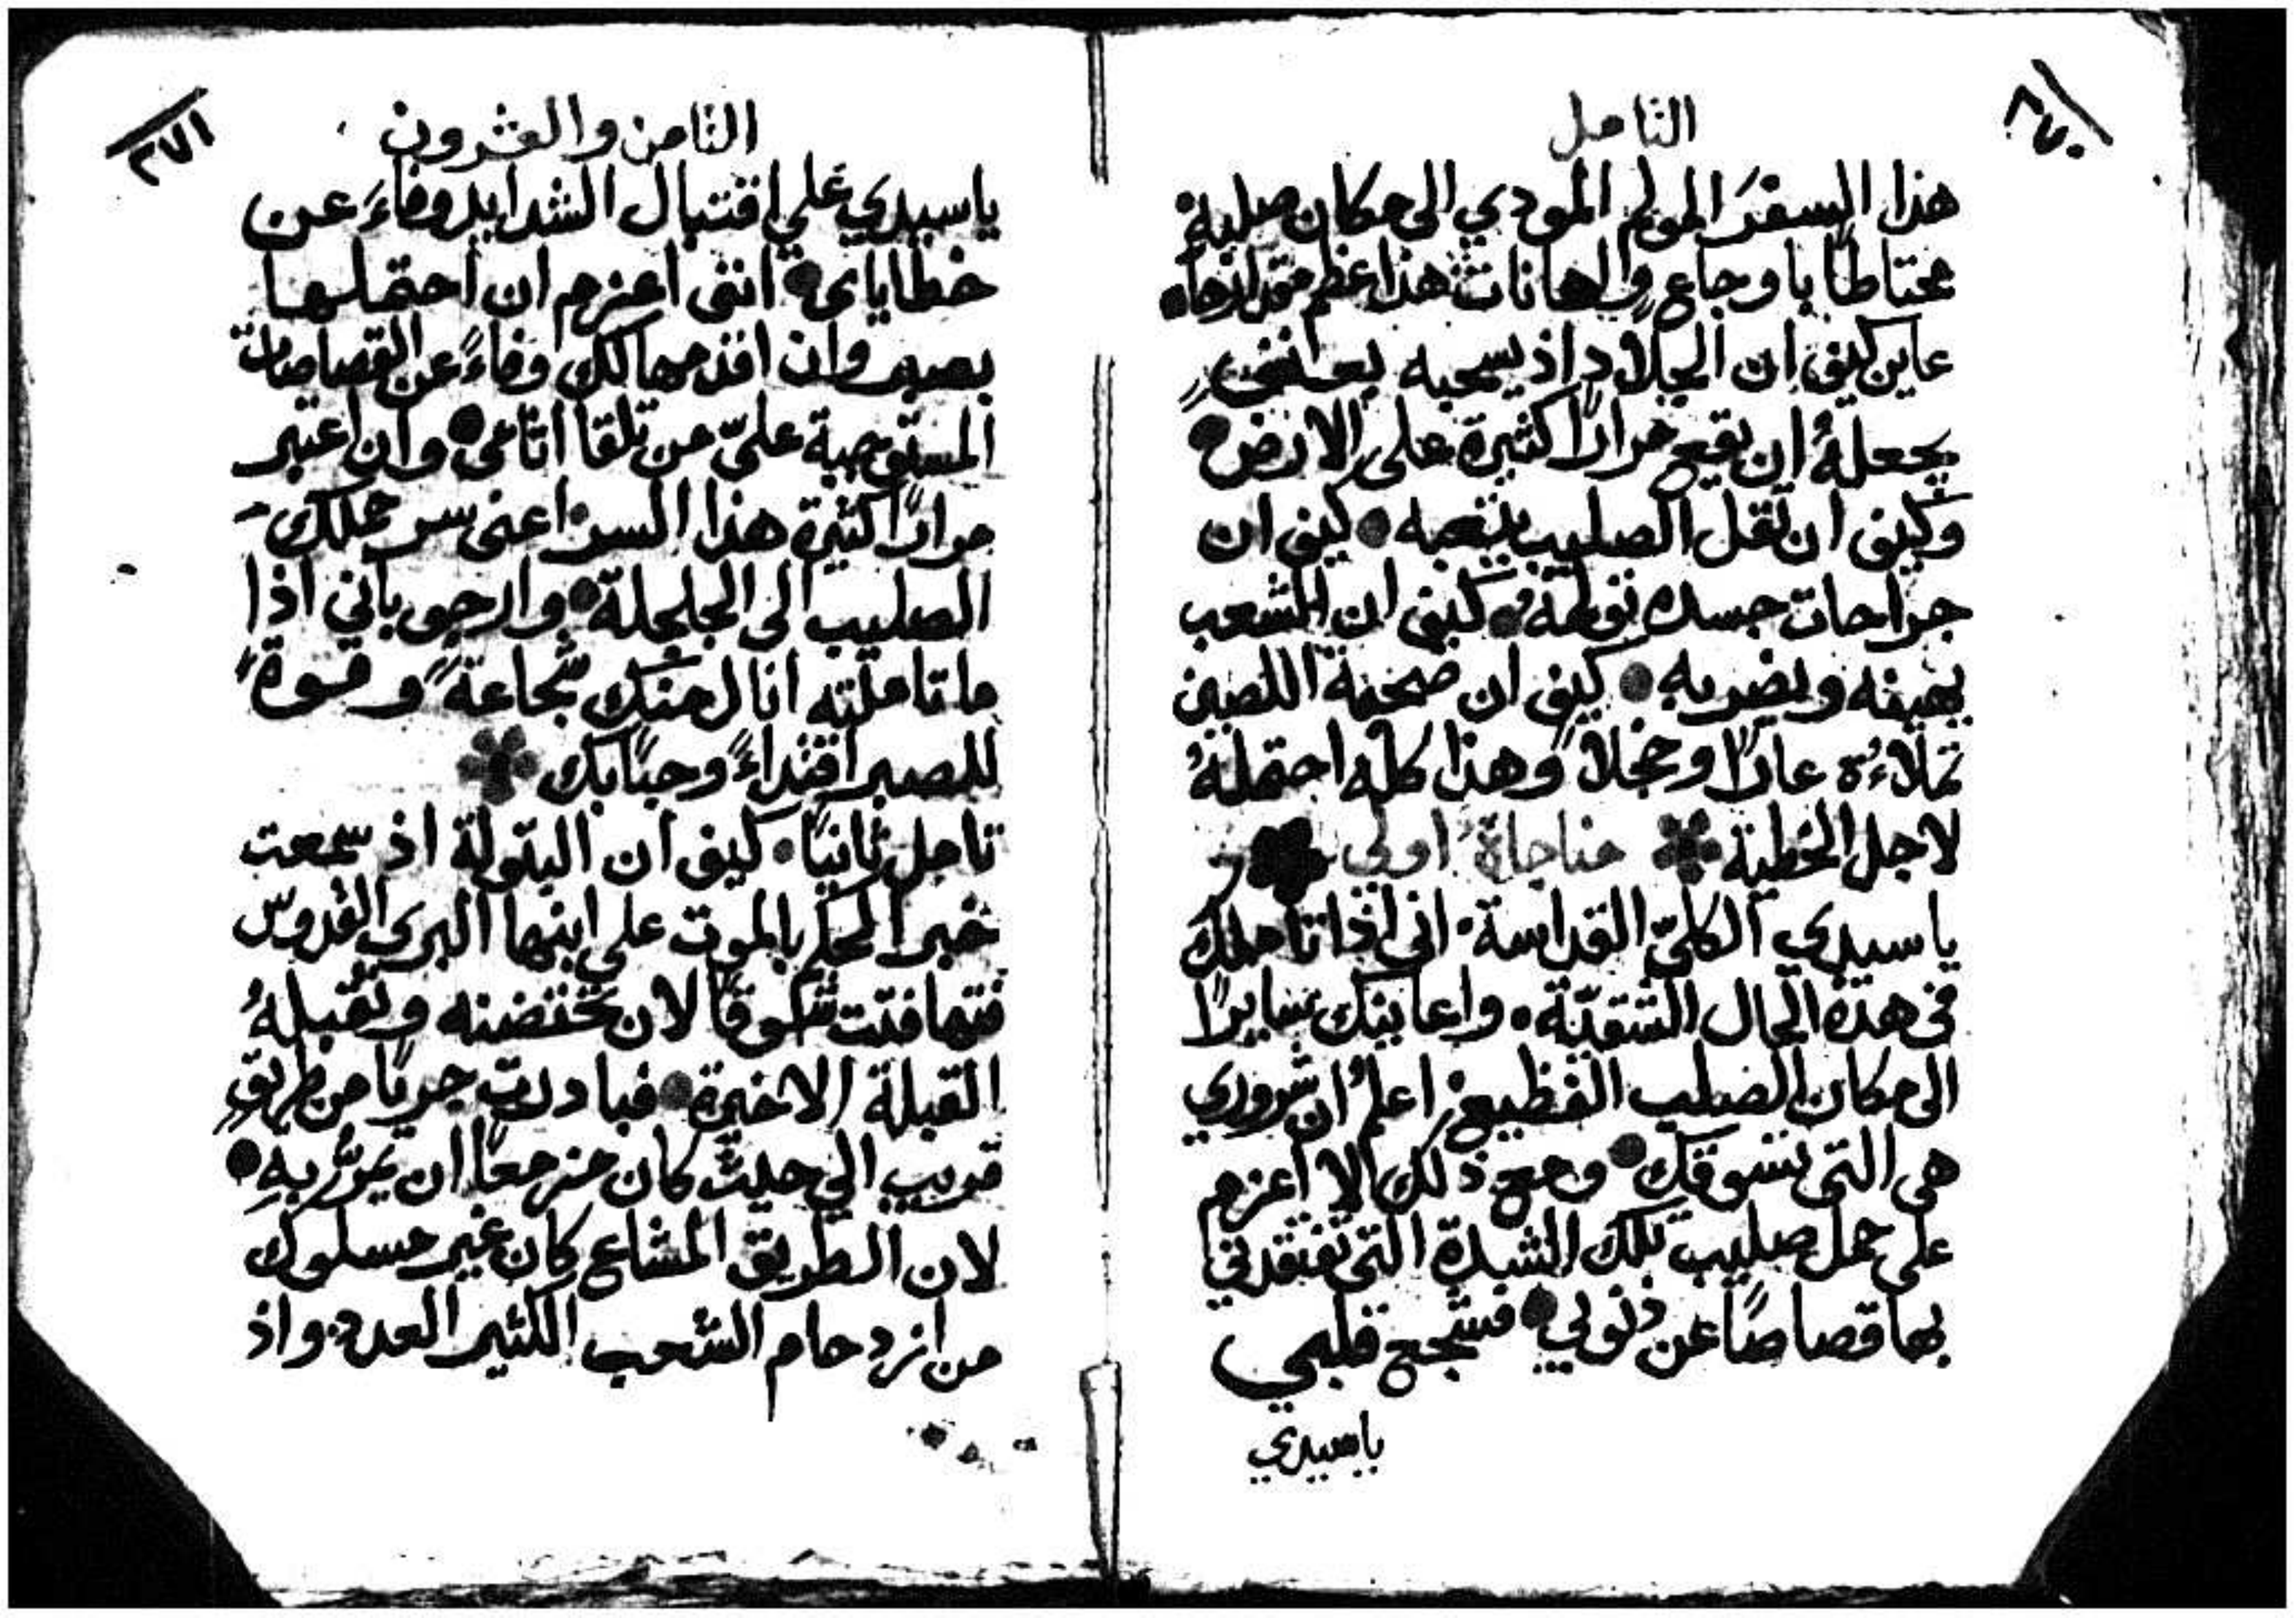 ٢٧٠
التامل
هذا السفرَ المولم المودي الى مكان صلبهِ
محتاطًا باوجاعٍ واهانات هذا عظم مقدارها
عاين كيف ان الجلاد اذ يسحبه بعنفٍ
يجعلهُ ان يقع مرارًا كثيرة على الارض
وكيف ان ثقل الصليب يتعبه كيف ان
جراحات جسده تولمه كيف ان الشعب
يهينه ويضربه كيف ان صحبة اللصين
تملاءُه عارًا وخجلاً وهذا كله احتملهُ
لاجل الخطية مناجاة اولى
يا سيدي الكليّ القداسة اني اذا تاملتك
في هذه الحال الشقيّة واعاينك سايرًا
الى مكان الصلب الفظيع اعلمُ ان شروري
هي التي تسوقك ومع ذلك الا اعزم
على حمل صليب تلك الشدة التي تفتقدني
بها قصاصًا عن ذنوبي فشجع قلبي
ياسيدي
٢٧١
الثامن والعشرون
ياسيدي على اقتبال الشدايد وفاءَ عن
خطاياى انني اعزم ان احتملها
بصبر وان اقدمها لك وفاءً عن القصاصات
المستوجبة عليّ من تلقا اثامى وان اعتبر
مرارًا كثيرة هذا السر اعنى سر حملك
الصليب الى الجلجلة وارجو باني اذا
ما تاملته انال منك شجاعةً وقوةً
للصبر اقتداءً وحبًا بك
تامل ثانيًا كيف ان البتولة اذ سمعت
خبر الحكم بالموت على ابنها البرى القدوس
فتهافتت شوقًا لان تحتضنه وتقبلهُ
القبلة الاخيرة فبادرت جريًا من طريقٍ
قريب الى حيث كان مزمعًا ان يمرُّ بهِ
لان الطريق المشاع كان غير مسلوك
من ازدحام الشعب الكثير العدد واذ